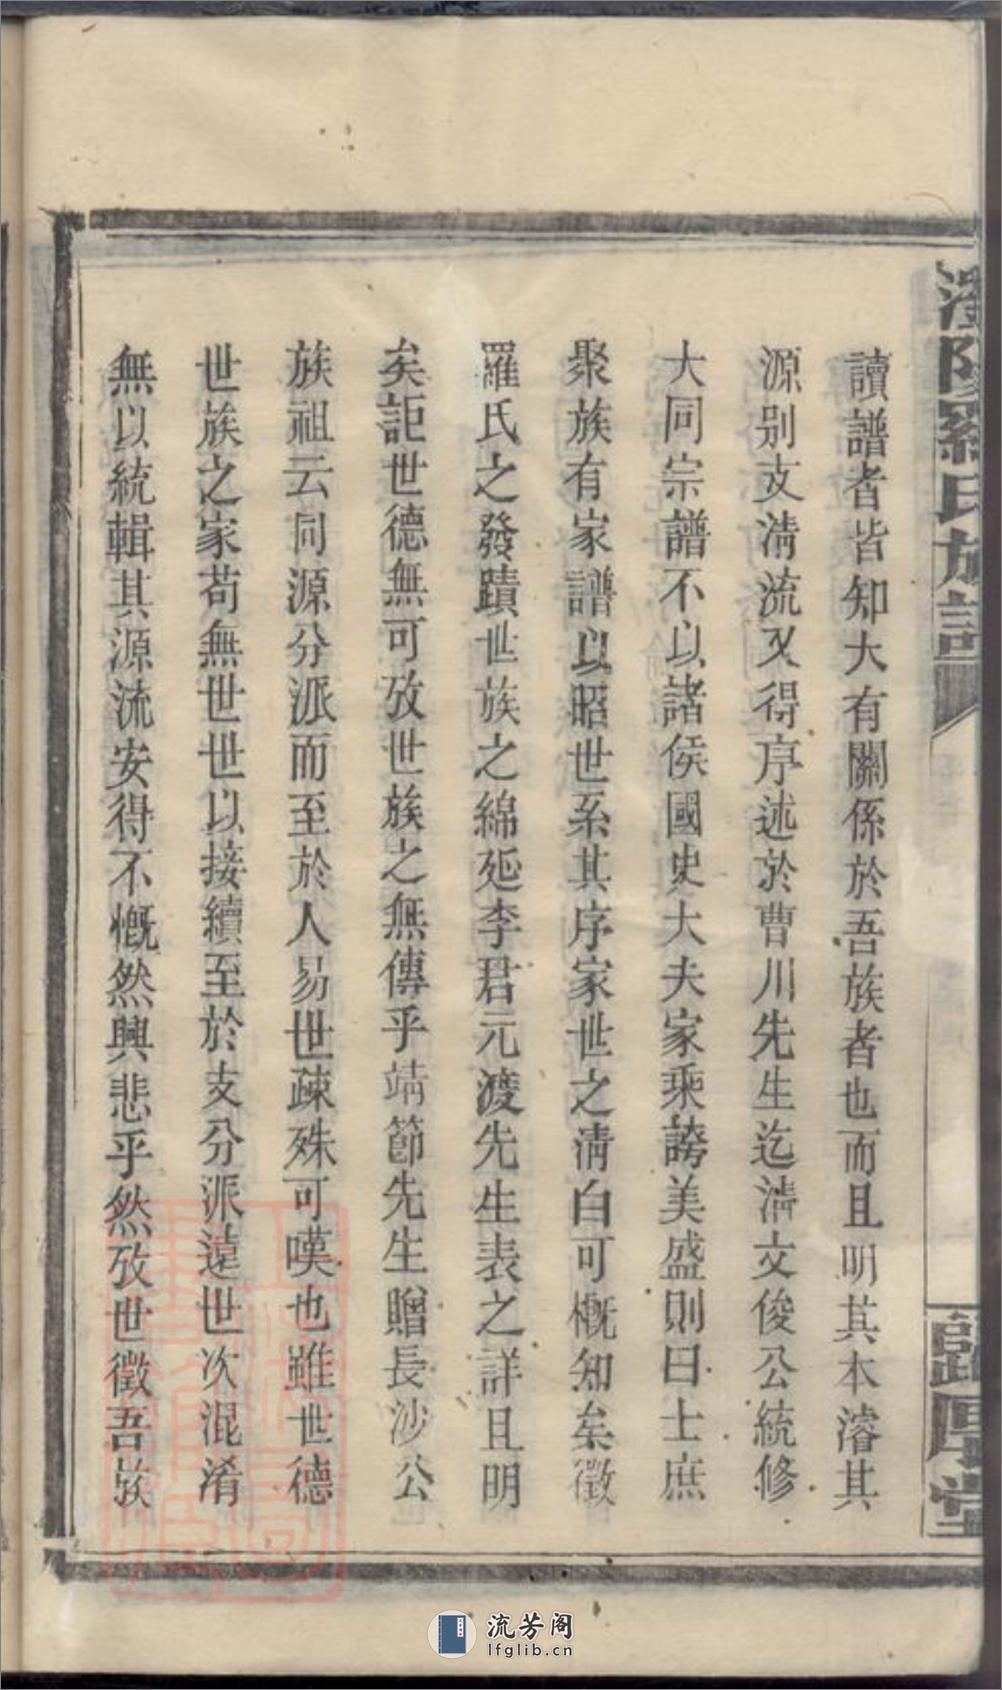 羅氏族譜
讀譜者皆知大有關係於吾族者也而且明其本濬其
源別支清流又得序述於曹川先生迄清文俊公統修
大同宗譜不以諸侯國史大夫家乘誇美盛則曰士庶
聚族有家譜以昭世系其序家世之清白可概知矣徵
羅氏之發蹟世族之綿延李君元渡先生表之詳且明
矣詎世德無可攷世族之無傳乎靖節先生贈長沙公
族祖云同源分派而至於人易世疎殊可嘆也雖世德
世族之家苟無世世以接續至於支分派遠世次混淆
無以統輯其源流安得不慨然興悲乎然攷世徵吾族
流芳阁
lfglib.cn